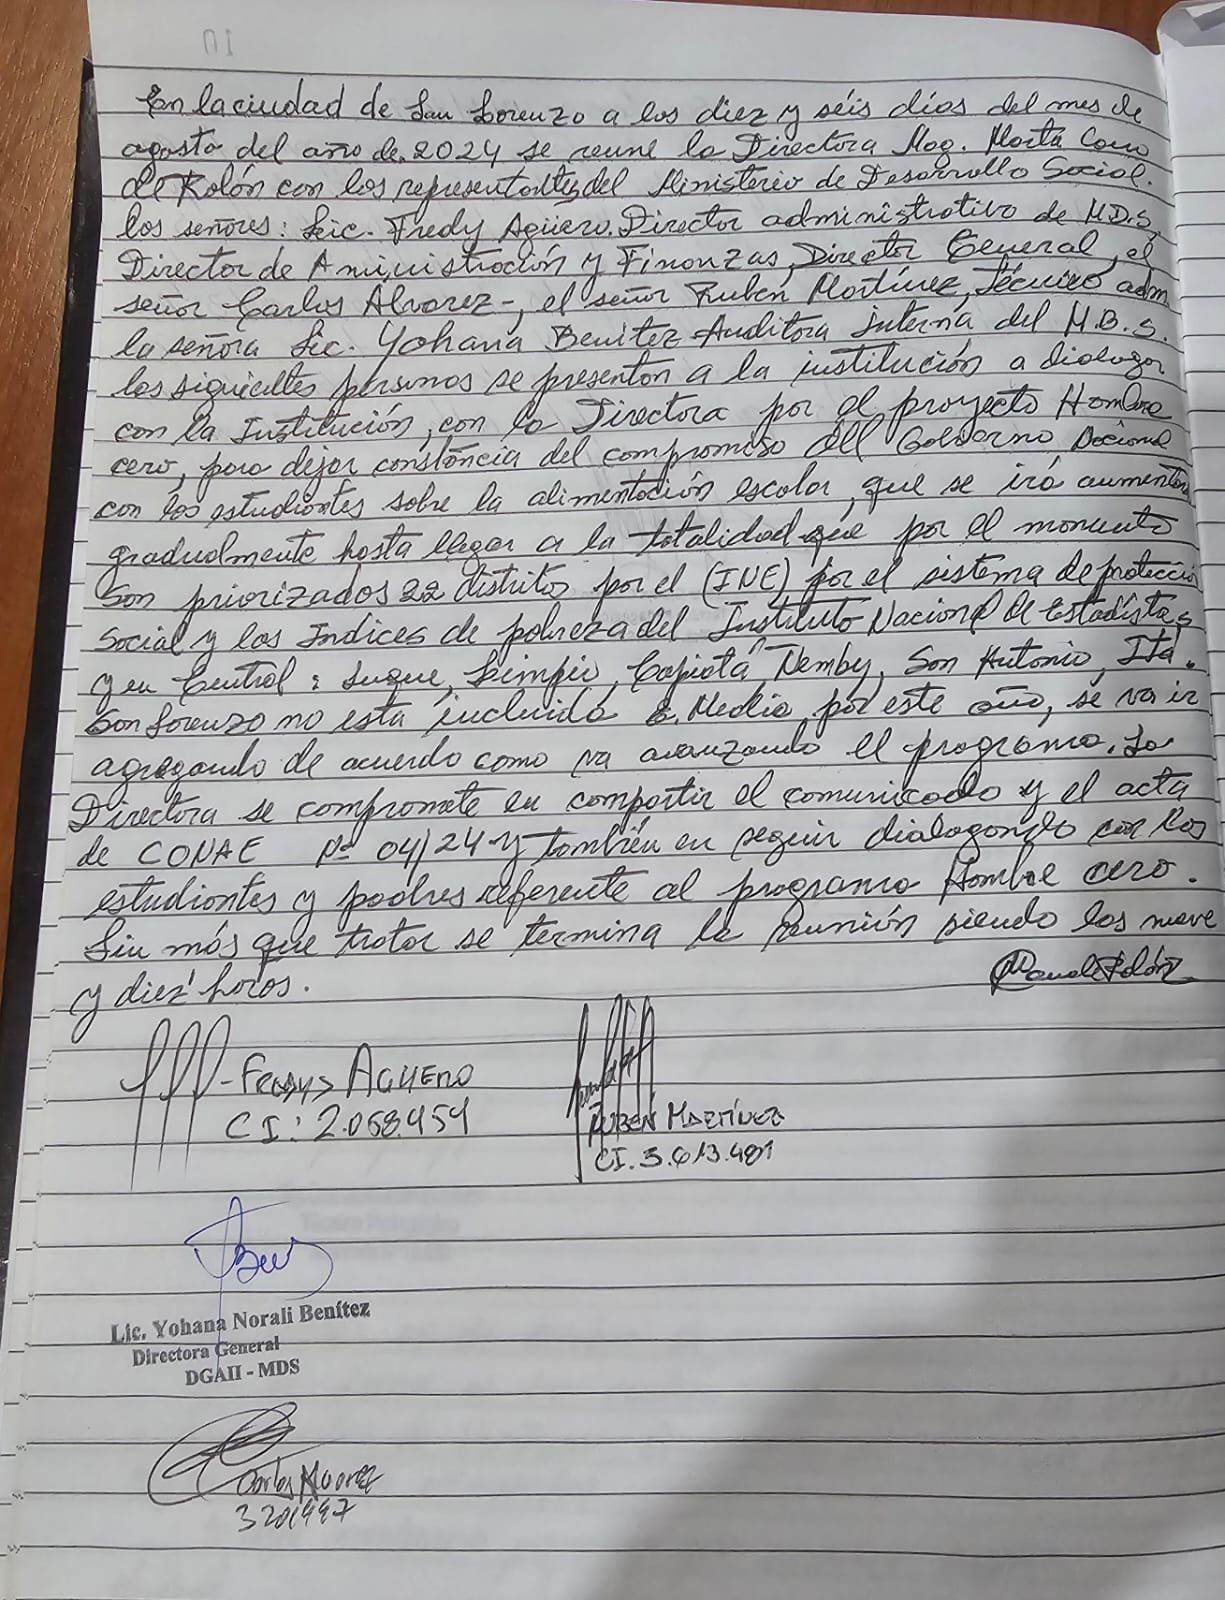 En la ciudad de San Lorenzo a los diez y séis días del mes de
agosto del año de 2024 se reune la Directora Mag. Marta Cano
de Rolón con los representantes del Ministerio de Desarrollo Social.
los señores: Lic. Fredy Agüero. Director administrativo de M.D.S,
Director de Aministración y Finanzas, Director General, el
señor Carlos Alvarez-, el señor Rubén Martínez, Técnico adm
la señora Lic. Yohana Benitez Auditora Interna del M.D.S.
las siguientes personas se presentan a la institución a dialogar
con la Institución, con la Directora por el proyecto Hambre
cero, para dejar constáncia del compromiso del Gobierno Nacional
con los estudiantes sobre la alimentación escolar, que se irá aumentando
gradualmente hasta llegar a la totalidad que por el momento
Son priorizados 22 distritos por el (INE) por el sistema de protección
Social y los Indices de pobreza del Instituto Nacional de Estadísticas
y en Central: Luque, Limpio, Capiatá, Ñemby, San Antonio, Itá.
San Lorenzo no esta incluido E. Media, por este año, se va ir
agregando de acuerdo como va avanzando el programa. La
Directora se compromete en compartir el comunicado y el acta
de CONAE Nº 04/24 y también en seguir dialogando con los
estudiantes y padres referente al programa Hambre cero.
Sin más que tratar se termina la reunión siendo las nueve
y diez horas.
Rolón
Fredys AGUERO
CI: 2.068.454
RUBÉN MARTÍNEZ
CI. 3.613.481
Lic. Yohana Norali Benítez
Directora General
DGAII - MDS
Carlos Alvarez
3201997